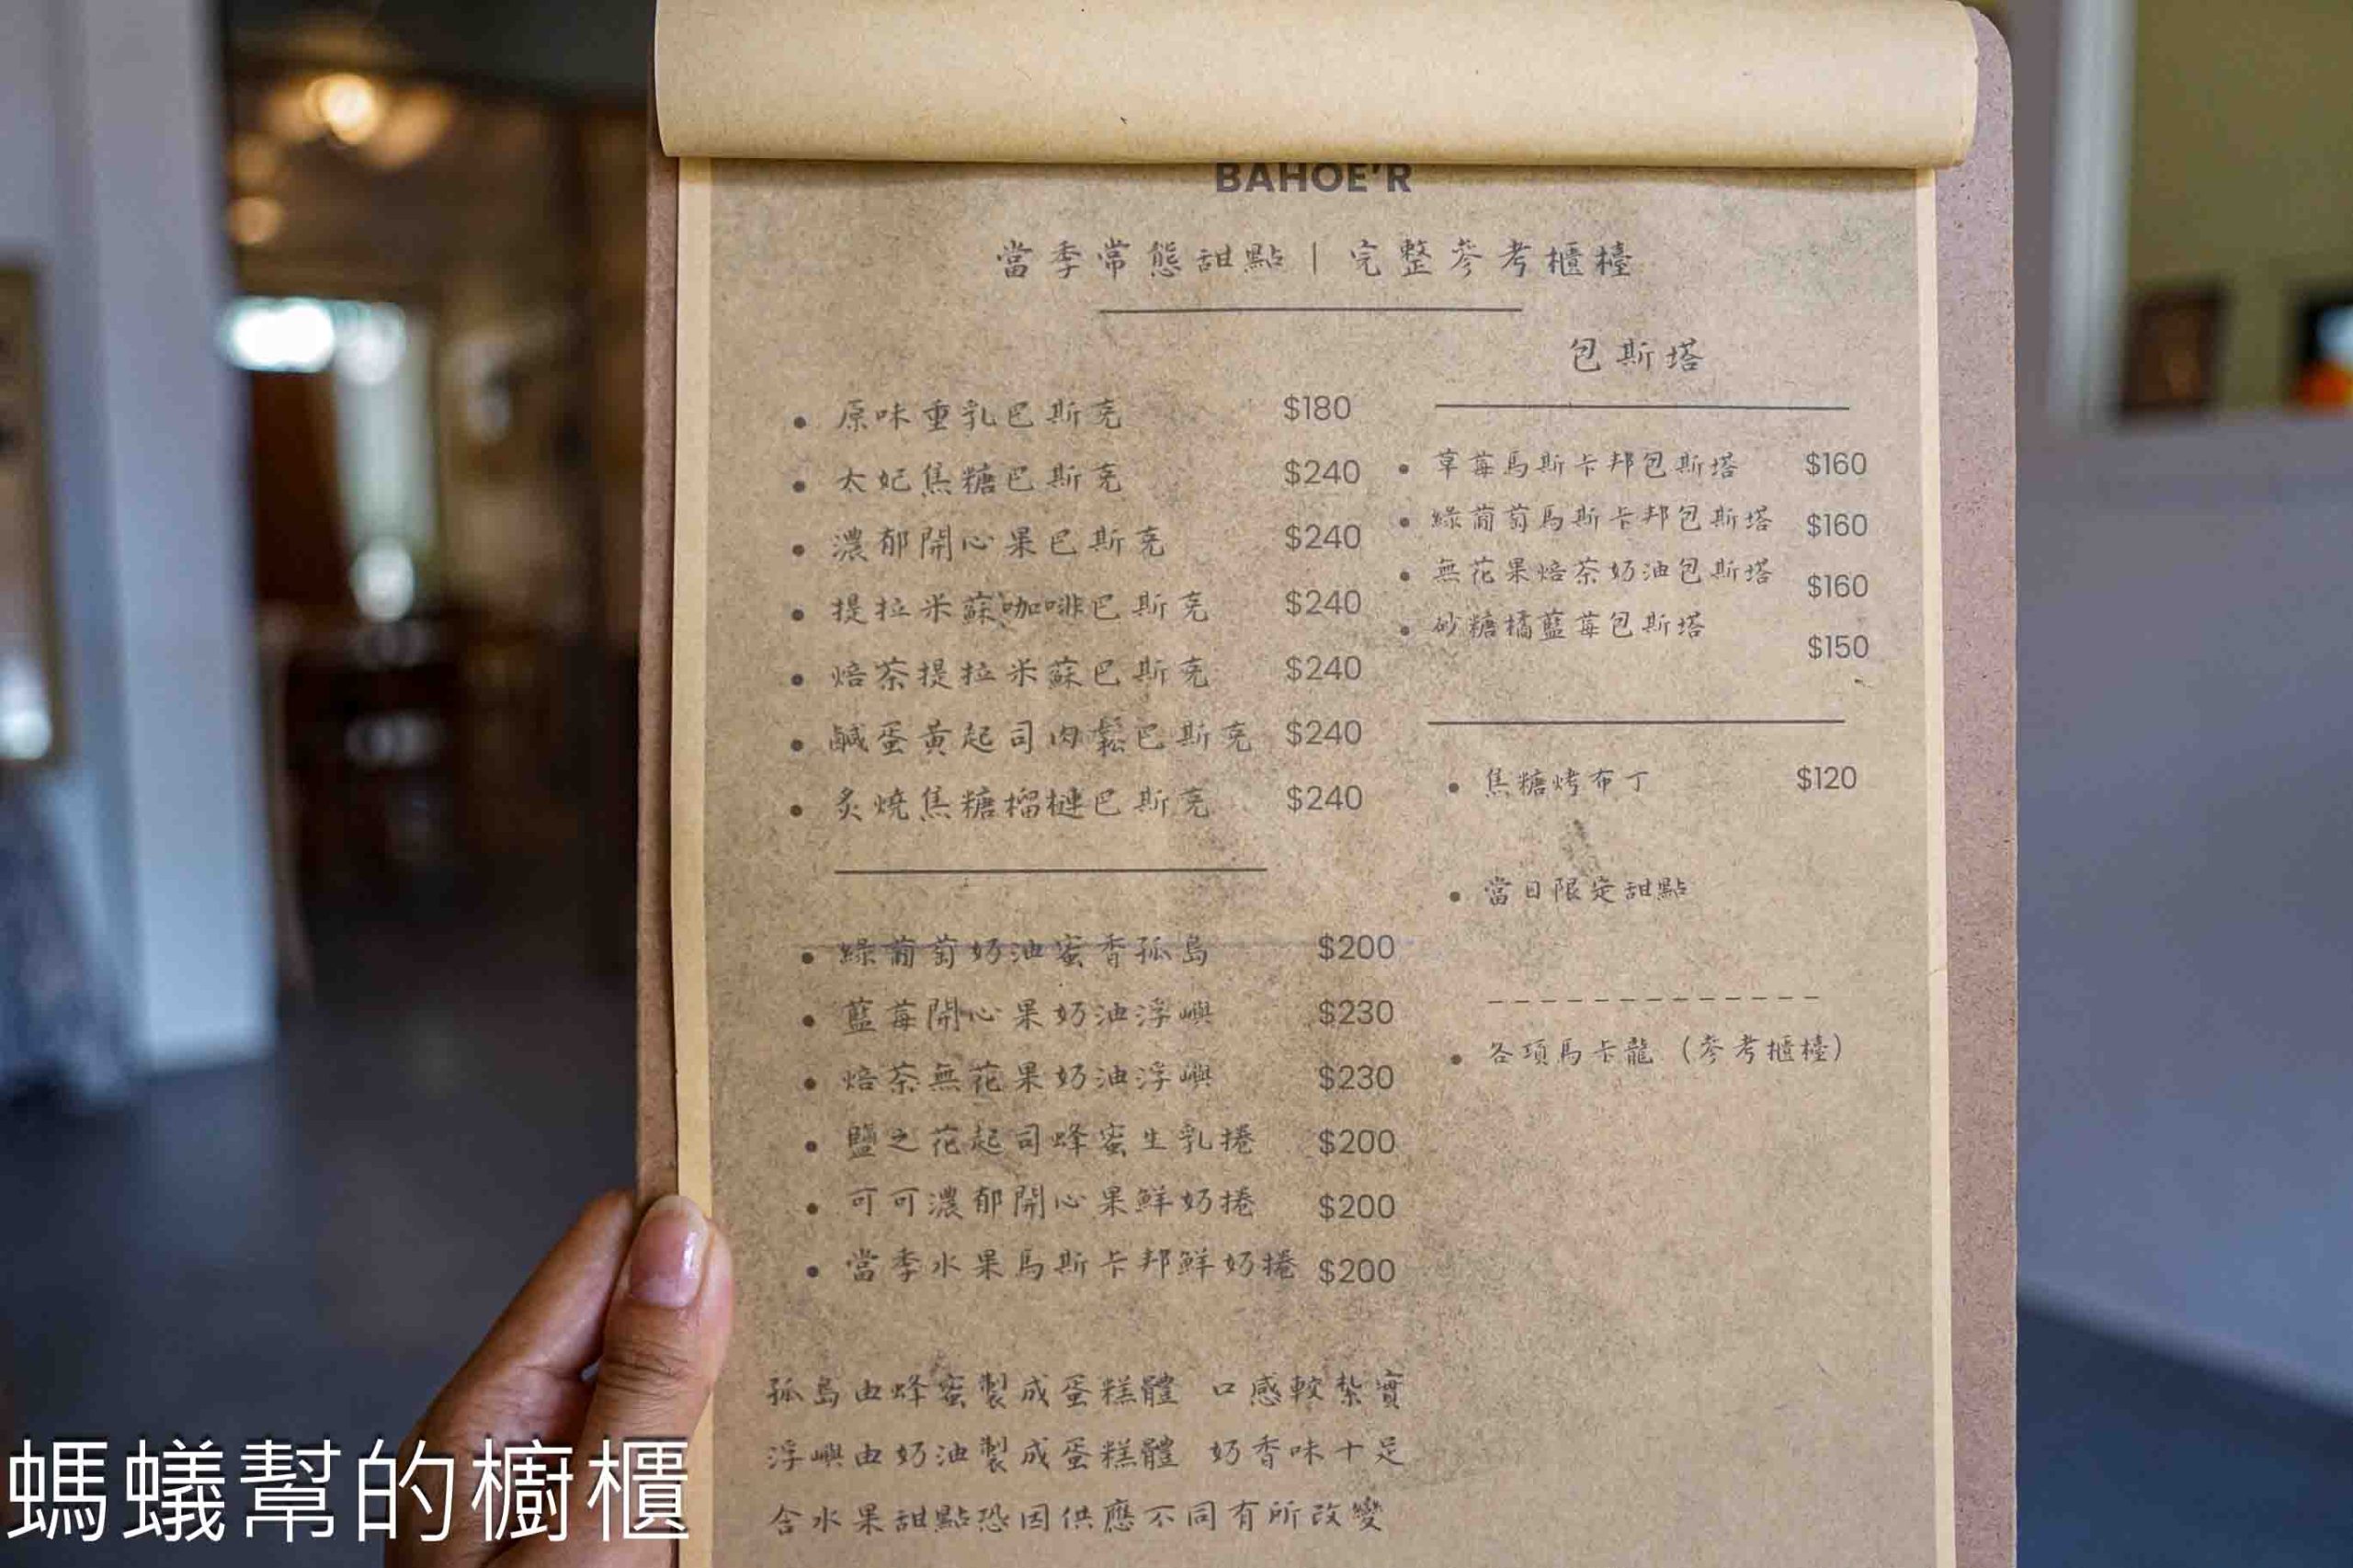 BAHOE'R
當季常態甜點 | 完整參考櫃檯
原味重乳巴斯克 $180
太妃焦糖巴斯克 $240
濃郁開心果巴斯克 $240
提拉米蘇咖啡巴斯克 $240
焙茶提拉米蘇巴斯克 $240
鹹蛋黃起司肉鬆巴斯克 $240
炙燒焦糖榴槤巴斯克 $240
綠葡萄奶油蜜香孤島 $200
藍莓開心果奶油浮嶼 $230
焙茶無花果奶油浮嶼 $230
鹽之花起司蜂蜜生乳捲 $200
可可濃郁開心果鮮奶捲 $200
當季水果馬斯卡邦鮮奶捲 $200
孤島由蜂蜜製成蛋糕體 口感較紮實
浮嶼由奶油製成蛋糕體 奶香味十足
含水果甜點恐因供應不同有所改變
包斯塔
草莓馬斯卡邦包斯塔 $160
綠葡萄馬斯卡邦包斯塔 $160
無花果焙茶奶油包斯塔 $160
砂糖橘藍莓包斯塔 $150
焦糖烤布丁 $120
當日限定甜點
各項馬卡龍（參考櫃檯）
螞蟻幫的櫥櫃